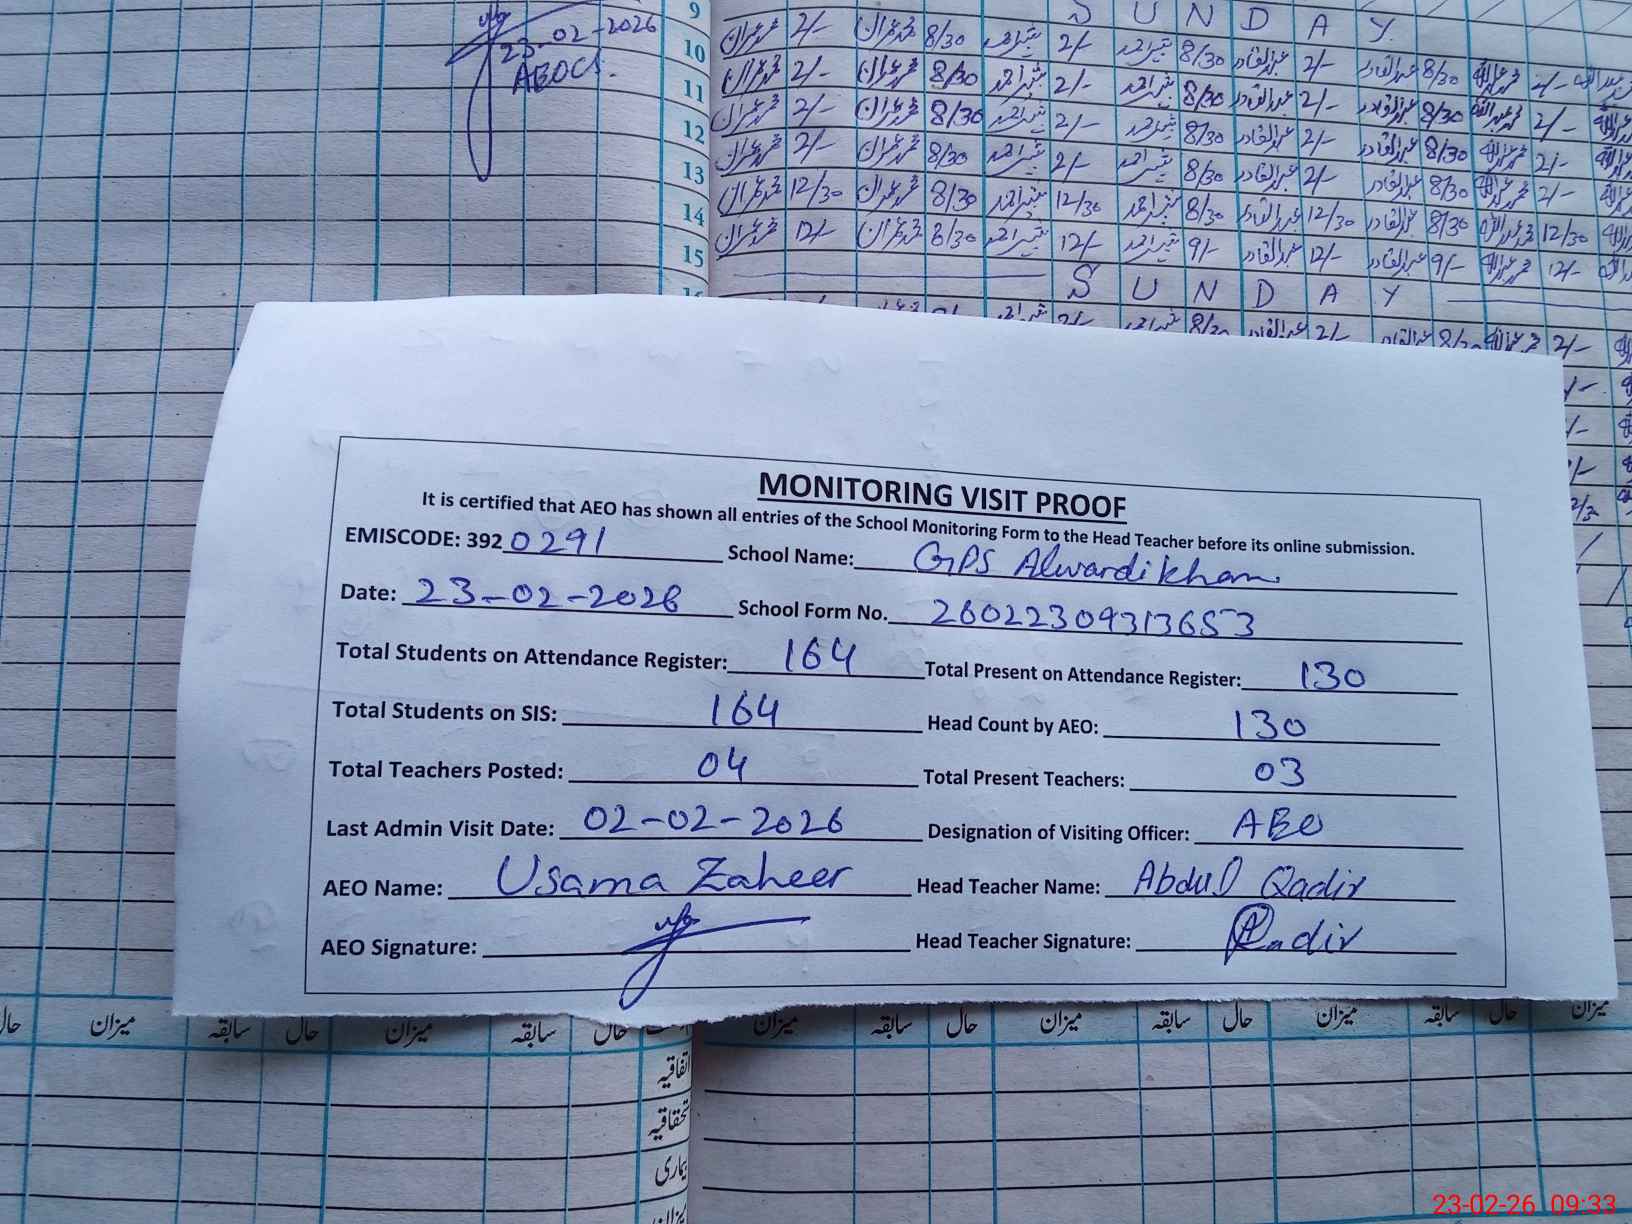 23-02-2026
9
S U N D A Y
10 محمد عمران 2/- محمد عمران 8/30 شبیر احمد 2/- شبیر احمد 8/30 عبدالقادر 2/- عبدالقادر 8/30 محمد عبداللہ 2/-
11 محمد عمران 2/- محمد عمران 8/30 شبیر احمد 2/- شبیر احمد 8/30 عبدالقادر 2/- عبدالقادر 8/30 محمد عبداللہ 2/-
12 محمد عمران 2/- محمد عمران 8/30 شبیر احمد 2/- شبیر احمد 8/30 عبدالقادر 2/- عبدالقادر 8/30 محمد عبداللہ 2/-
13 محمد عمران 2/- محمد عمران 8/30 شبیر احمد 2/- شبیر احمد 8/30 عبدالقادر 2/- عبدالقادر 8/30 محمد عبداللہ 2/-
14 محمد عمران 12/30 محمد عمران 8/30 شبیر احمد 12/30 شبیر احمد 8/30 عبدالقادر 12/30 عبدالقادر 8/30 محمد عبداللہ 12/30
15 محمد عمران 12/- محمد عمران 8/30 شبیر احمد 12/- شبیر احمد 9/- عبدالقادر 12/- عبدالقادر 9/- محمد عبداللہ 12/-
S U N D A Y
MONITORING VISIT PROOF
It is certified that AEO has shown all entries of the School Monitoring Form to the Head Teacher before its online submission.
EMISCODE: 392 0291 School Name: GPS Alwardi kham
Date: 23-02-2026 School Form No. 26022309313653
Total Students on Attendance Register: 164 Total Present on Attendance Register: 130
Total Students on SIS: 164 Head Count by AEO: 130
Total Teachers Posted: 04 Total Present Teachers: 03
Last Admin Visit Date: 02-02-2026 Designation of Visiting Officer: AEO
AEO Name: Usama Zaheer Head Teacher Name: Abdul Qadir
AEO Signature: Head Teacher Signature: Qadir
حال میزان سابقہ حال میزان سابقہ حال میزان سابقہ حال میزان سابقہ حال میزان سابقہ حال میزان
اتفاقیہ
تحقاقیہ
بیماری
میزان
23-02-26 09:33